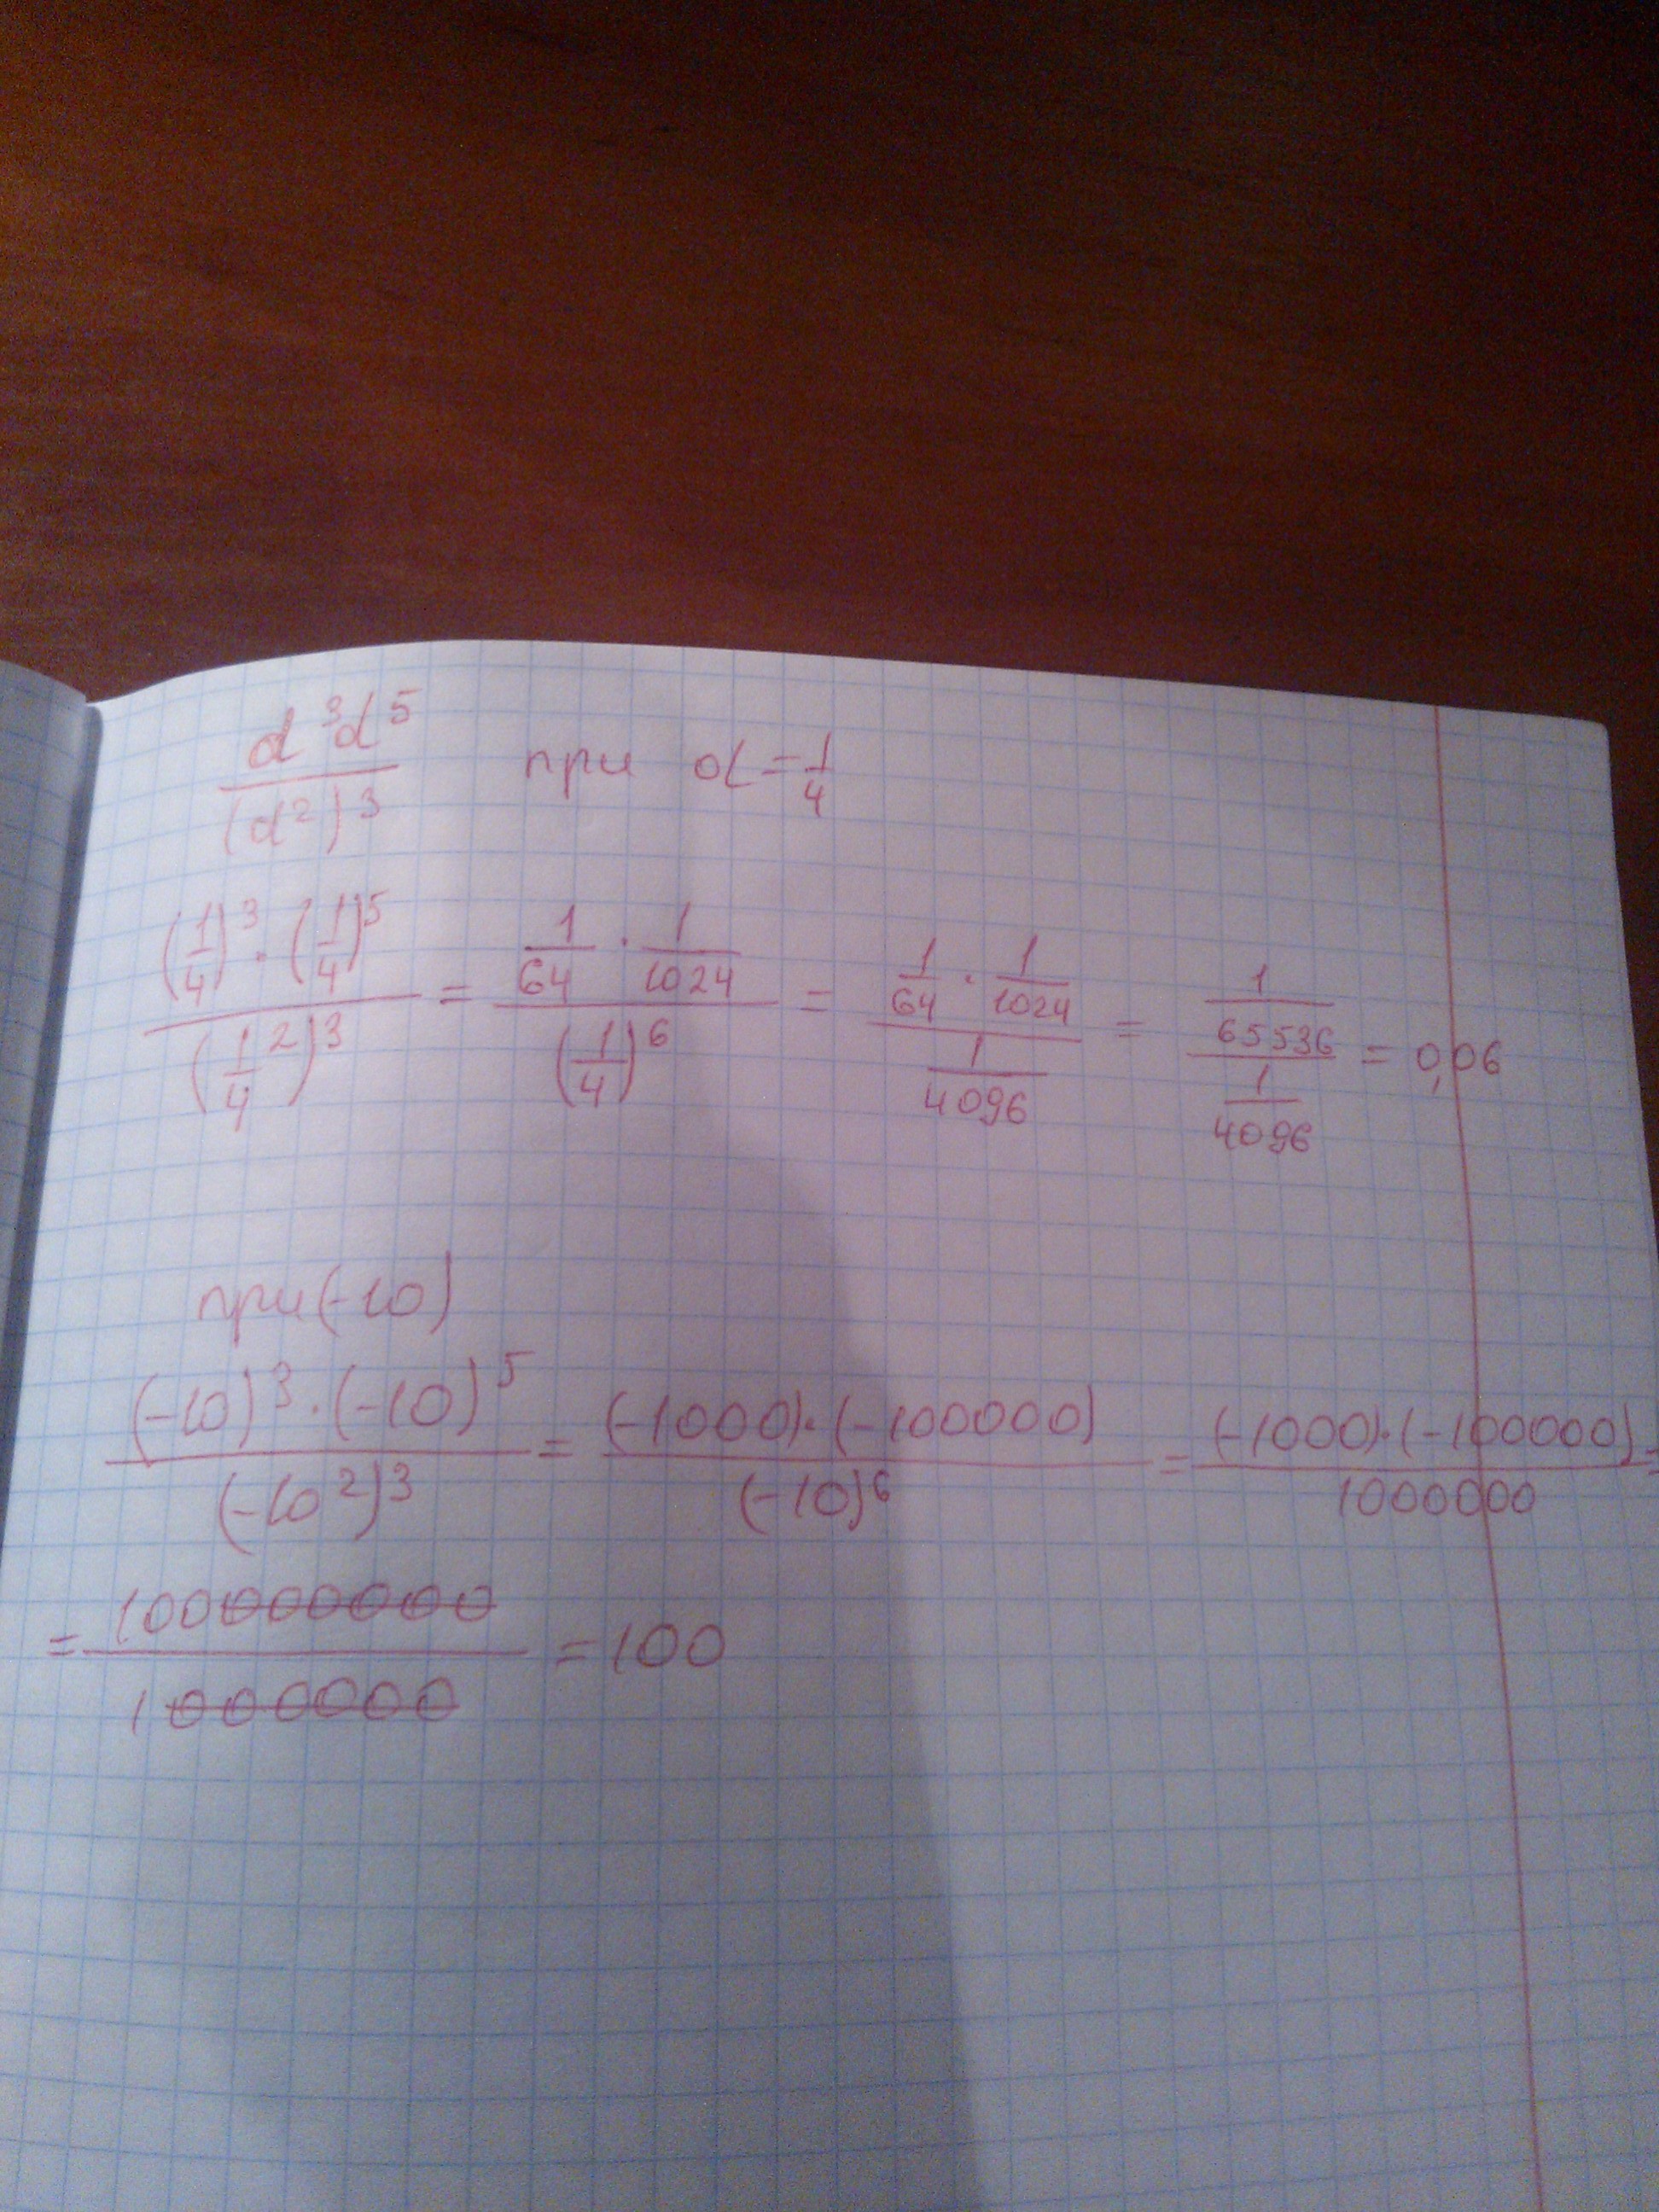 d³d⁵/(d²)³ при d=1/4
((1/4)³·(1/4)⁵)/(1/4²)³ = (1/64·1/1024)/(1/4)⁶ = (1/64·1/1024)/(1/4096) = (1/65536)/(1/4096) = 0,06
при (-10)
((-10)³·(-10)⁵)/(-10²)³ = ((-1000)·(-100000))/(-10)⁶ = ((-1000)·(-100000))/1000000 =
= 100000000/1000000 = 100